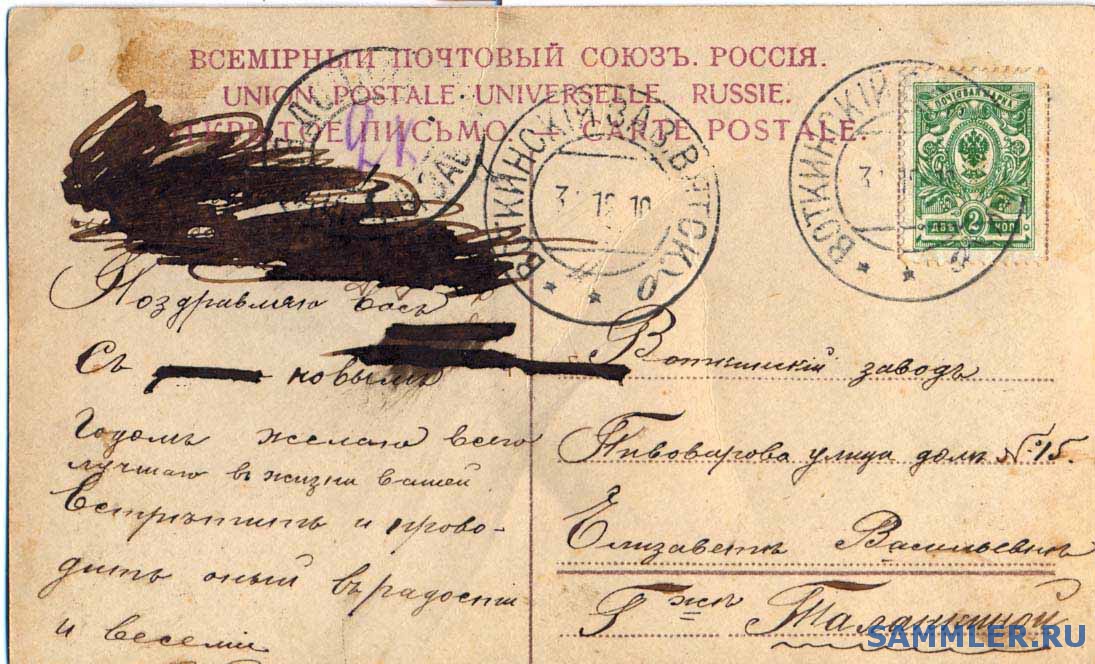 ВСЕМІРНЫЙ ПОЧТОВЫЙ СОЮЗЪ. РОССІЯ.
UNION POSTALE UNIVERSELLE. RUSSIE.
ОТКРЫТОЕ ПИСЬМО. — CARTE POSTALE.
2к
ВОТКИНСКІЙ ЗАВ. ВЯТСК.
31 12 10
ВОТКИНСКІЙ
ПОЧТОВАЯ МАРКА
ДВѢ 2 КОП
Поздравляю васъ
Съ новымъ
Годомъ желаю всего
лучшаго в жизни вашей
Встрѣтить и прово-
дить оный въ радости
и веселіи
Воткинскій заводъ
Пивоварова улица домъ № 15.
Елизаветѣ Васильевнѣ
Г-жѣ Таланкиной
SAMMLER.RU